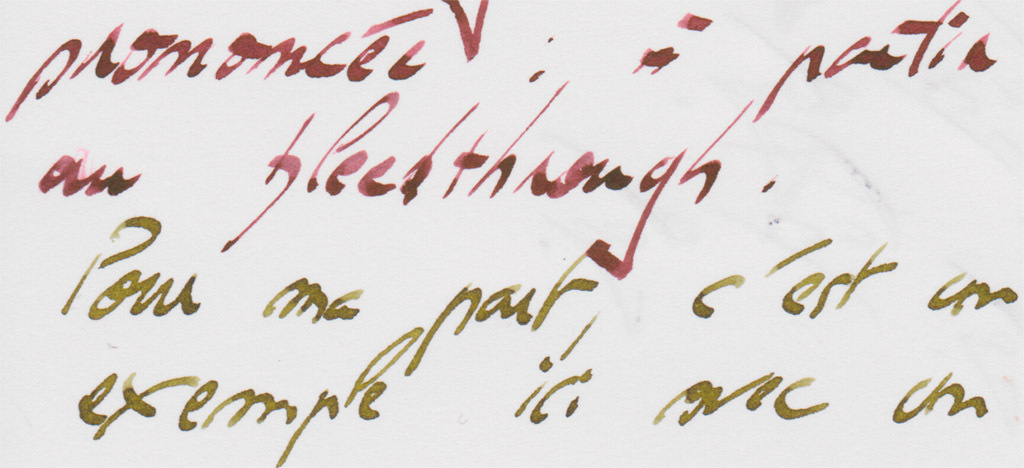 prononcée : à partir
au bleedthrough.
Pour ma part, c'est un
exemple ici avec un